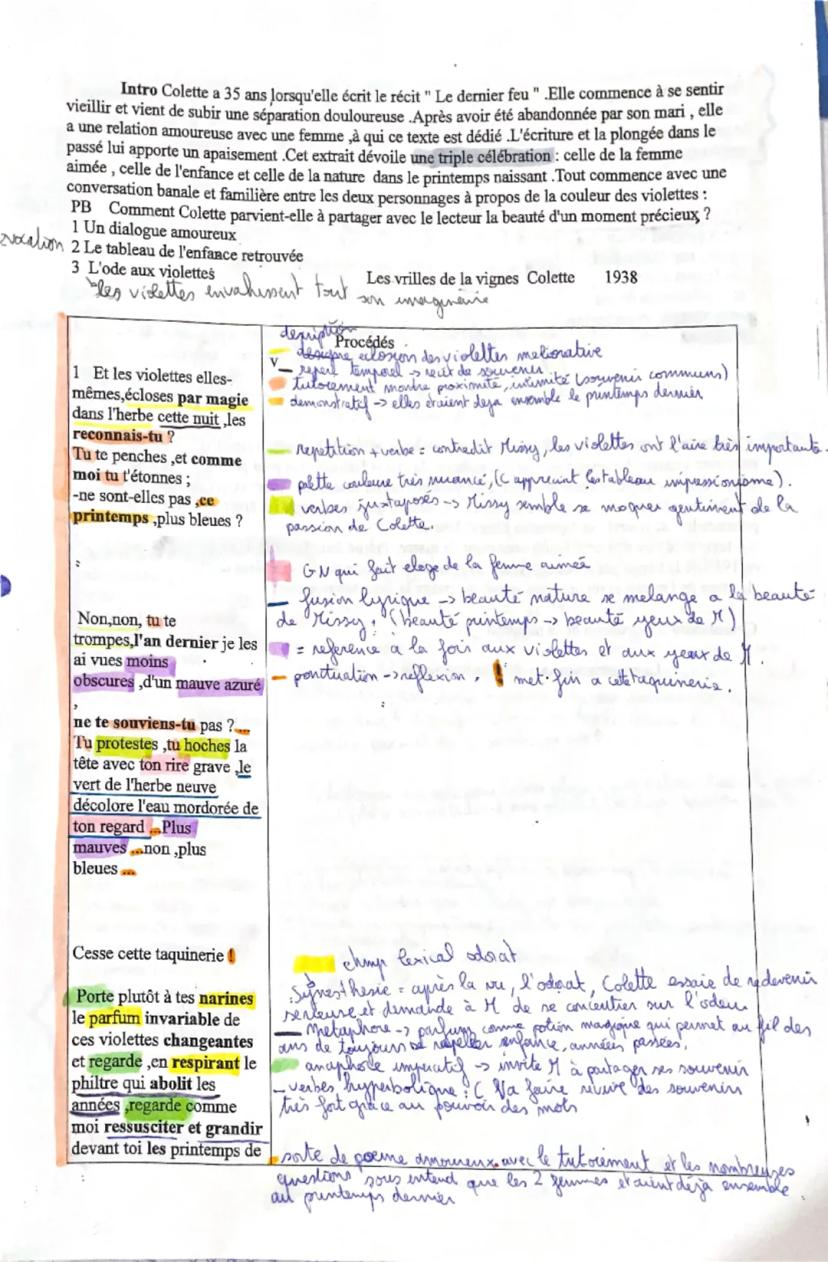 Intro Colette a 35 ans lorsqu'elle écrit le récit " Le dernier feu " .Elle commence à se sentir
vieillir et vient de subir une séparation douloureuse .Après avoir été abandonnée par son mari , elle
a une relation amoureuse avec une femme ,à qui ce texte est dédié .L'écriture et la plongée dans le
passé lui apporte un apaisement .Cet extrait dévoile une triple célébration : celle de la femme
aimée , celle de l'enfance et celle de la nature dans le printemps naissant .Tout commence avec une
conversation banale et familière entre les deux personnages à propos de la couleur des violettes :
PB Comment Colette parvient-elle à partager avec le lecteur la beauté d'un moment précieux ?
1 Un dialogue amoureux
2 Le tableau de l'enfance retrouvée
3 L'ode aux violettes
Les vrilles de la vignes Colette 1938
les violettes envahissent tout son imaginaire
1 Et les violettes elles-
mêmes,écloses par magie
dans l'herbe cette nuit ,les
reconnais-tu ?
Tu te penches ,et comme
moi tu t'étonnes ;
-ne sont-elles pas ,ce
printemps ,plus bleues ?
:
Non,non, tu te
trompes,l'an dernier je les
ai vues moins
obscures ,d'un mauve azuré
,
ne te souviens-tu pas ?...
Tu protestes ,tu hoches la
tête avec ton rire grave ,le
vert de l'herbe neuve
décolore l'eau mordorée de
ton regard ...Plus
mauves ...non ,plus
bleues ...
Cesse cette taquinerie !
Porte plutôt à tes narines
le parfum invariable de
ces violettes changeantes
et regarde ,en respirant le
philtre qui abolit les
années ,regarde comme
moi ressusciter et grandir
devant toi les printemps de
description
Procédés
éclosion des violettes meliorative
V _ repère temporel -> recit de souvenir
tutoiement montre proximité, intimité (souvenir communs)
demonstratif -> elles étaient deja ensemble le printemps dernier
repetition + verbe = contredit Missy, les violettes ont l'aire très importante.
couleure très nuancé, (C appreciait les tableau impressionisme).
verbes juxtaposés -> Missy semble se moquer gentiment de la
passion de Colette.
GN qui fait eloge de la femme aimée
fusion lyrique -> beauté nature se melange a la beauté
de Missy, (beauté printemps -> beauté yeux de M)
= reference a la fois aux violettes et aux yeux de M.
ponctuation -> reflexion, ! met fin a cette taquinerie.
champ lexical odorat
Synesthesie = après la vu, l'odorat, Colette essaie de redevenir
serieuse et demande à M de se concentrer sur l'odeur
Metaphore -> parfum comme potion magique qui permet au fil des
ans de toujours se rappeler enfance, années passées.
anaphore imperatif -> invite M à partager ses souvenir
_ verbes hyperbolique : C Va faire revivre des souvenirs
très fort grâce au pouvoir des mots
sorte de poeme amoureux avec le tutoiement et les nombreuses
questions sous entend que les 2 femmes etaient déja ensemble
au printemps dernier